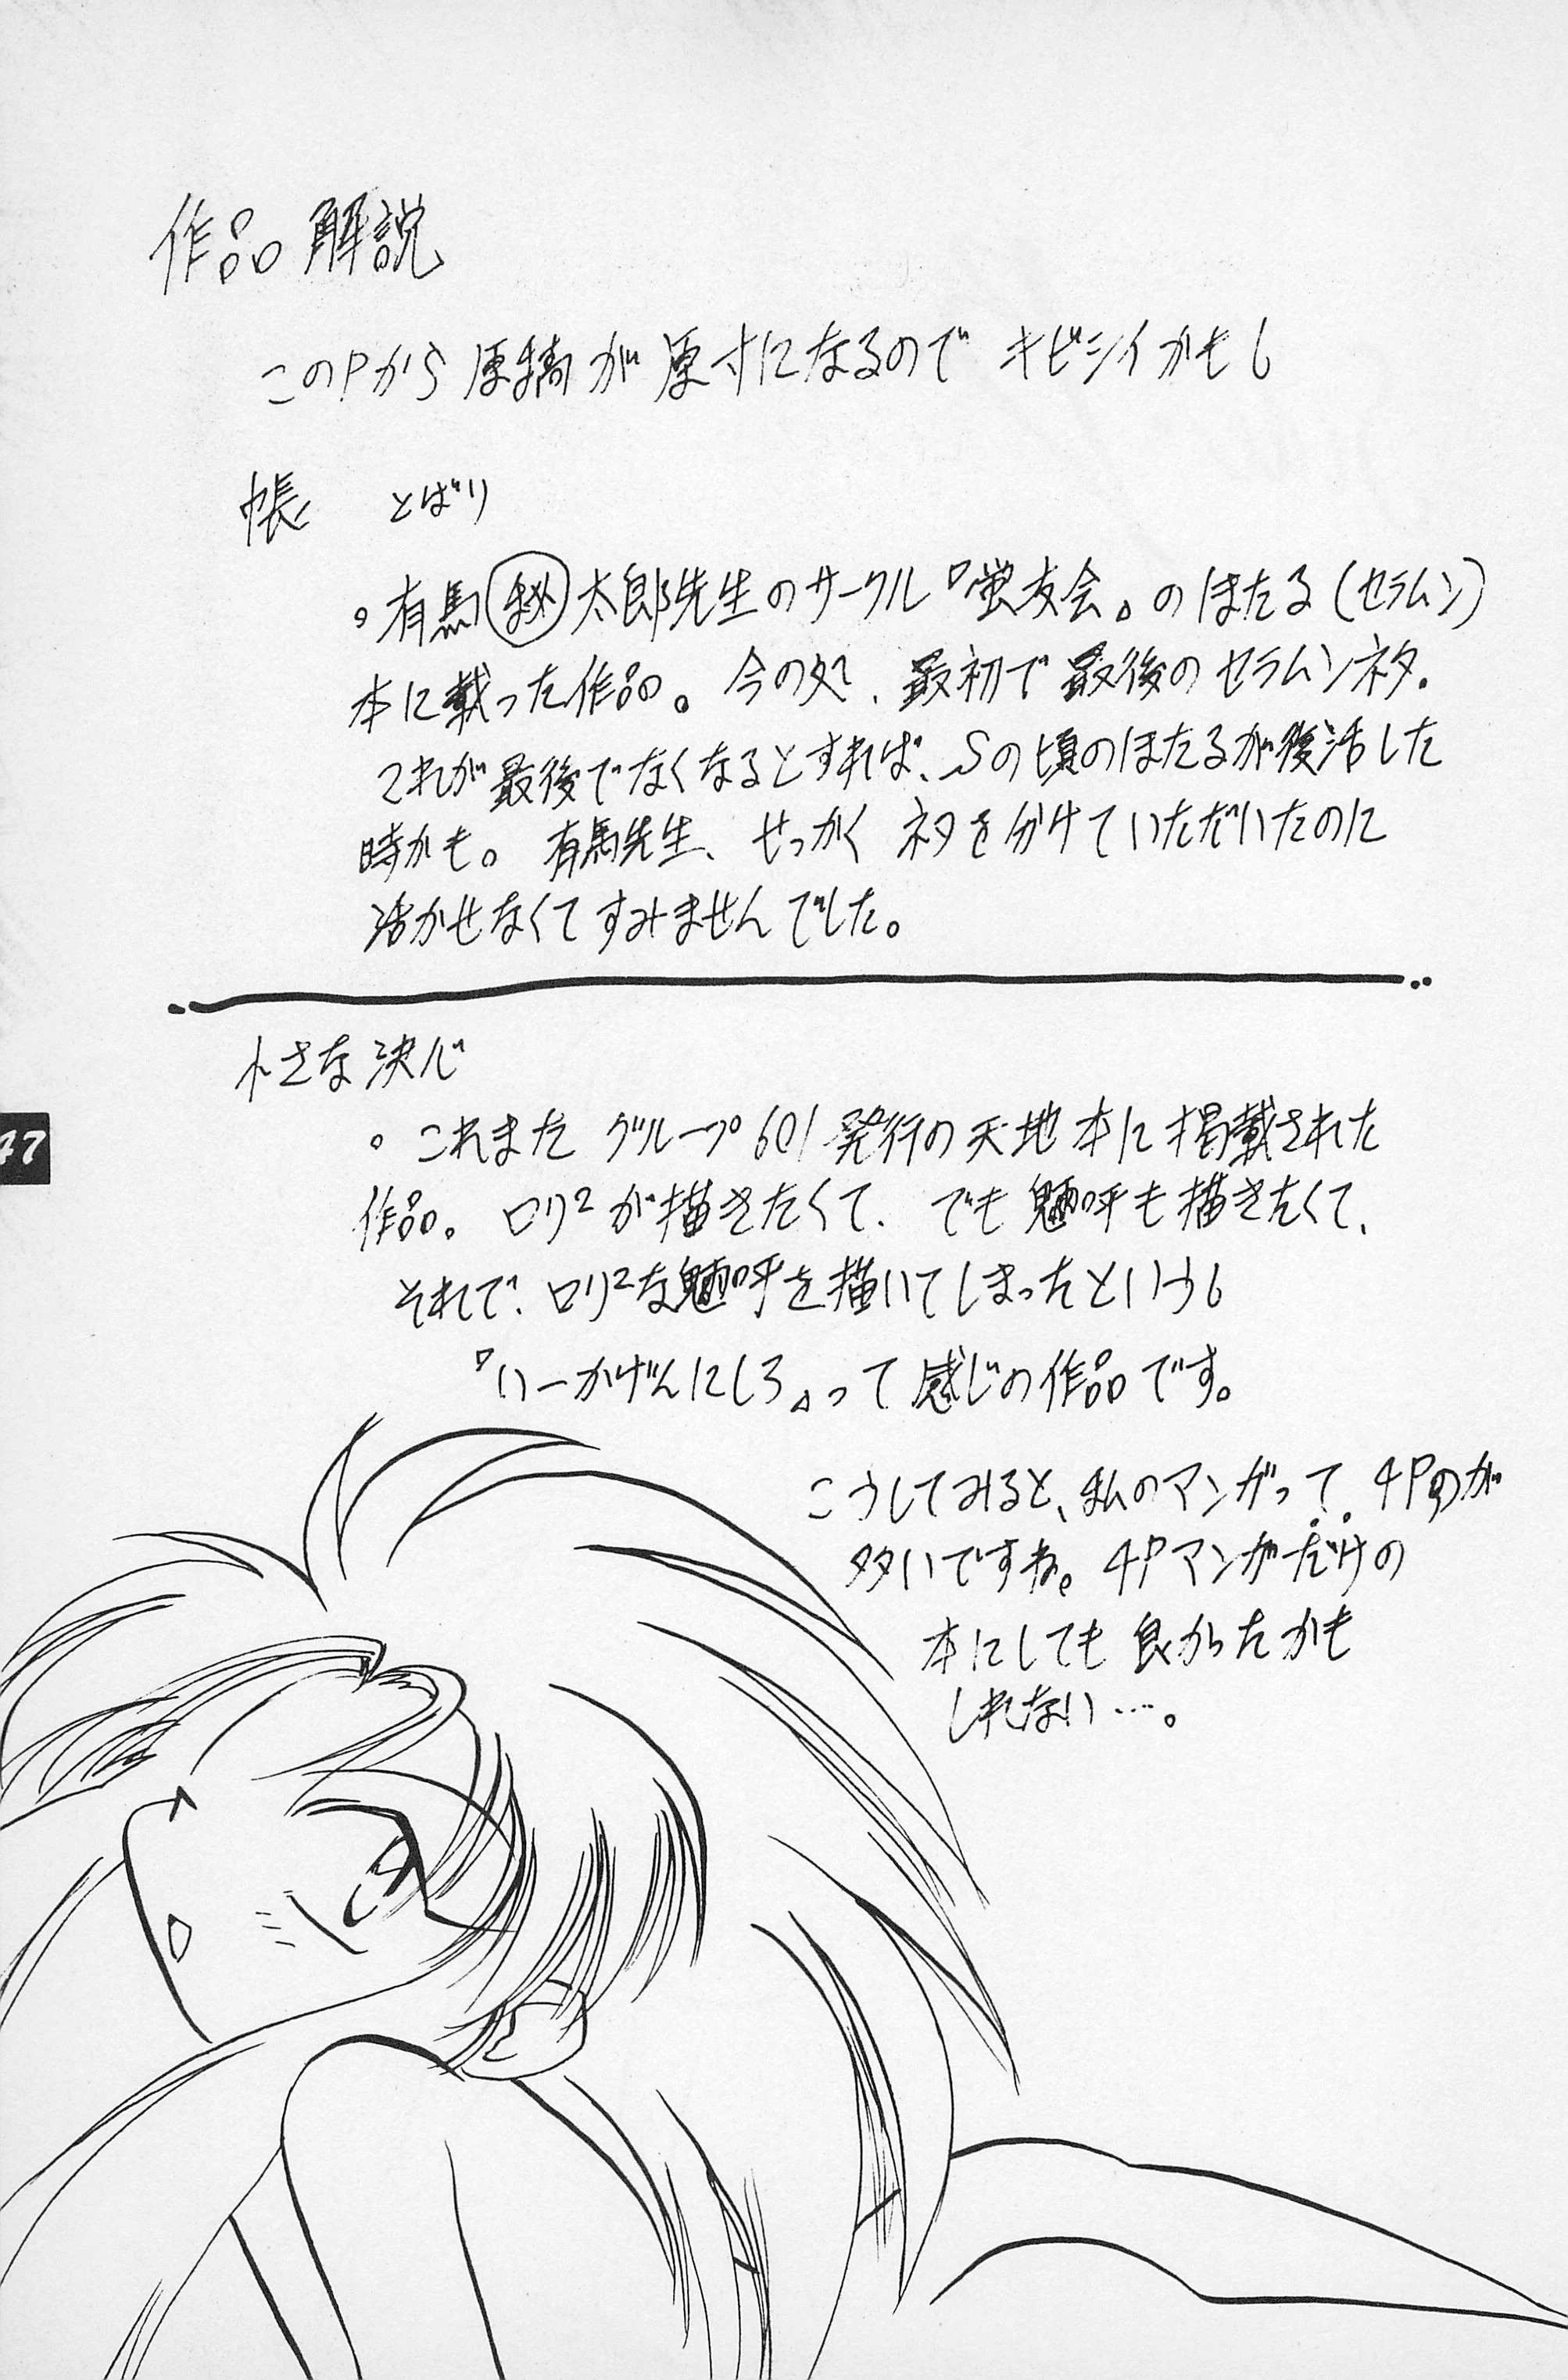 作品解説
このPから原稿が原寸になるので キビシイかも(
帳 とばり
。有馬㊙太郎先生のサークル『蛍友会』のほたる(セラムン)
本に載った作品。今の処、最初で最後のセラムンネタ。
これが最後でなくなるとすれば、Sの頃のほたるが復活した
時かも。有馬先生、せっかくネタを分けていただいたのに
活かせなくてすみませんでした。
小さな決心
。これまたグループ601発行の天地本に掲載された
作品。ロリ²が描きたくて、でも魎呼も描きたくて、
それで、ロリ²な魎呼を描いてしまったという(
『いーかげんにしろ』って感じの作品です。
こうしてみると、私のマンガって、4Pのが
多いですね。4Pマンガだけの
本にしても良かったかも
しれない…。
47